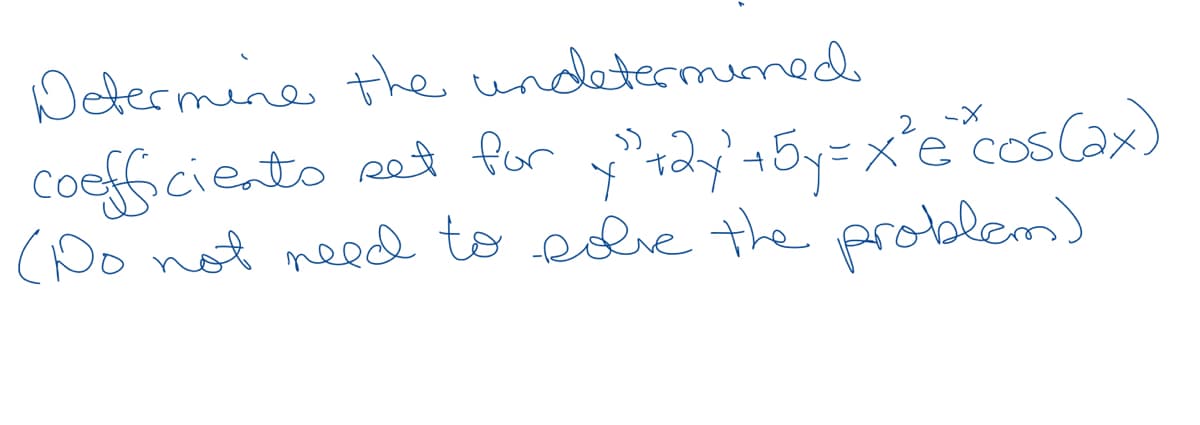 Determine the undetermined
coefficients set for y''+2y'+5y=x²e⁻ˣcos(2x)
(Do not need to solve the problem)